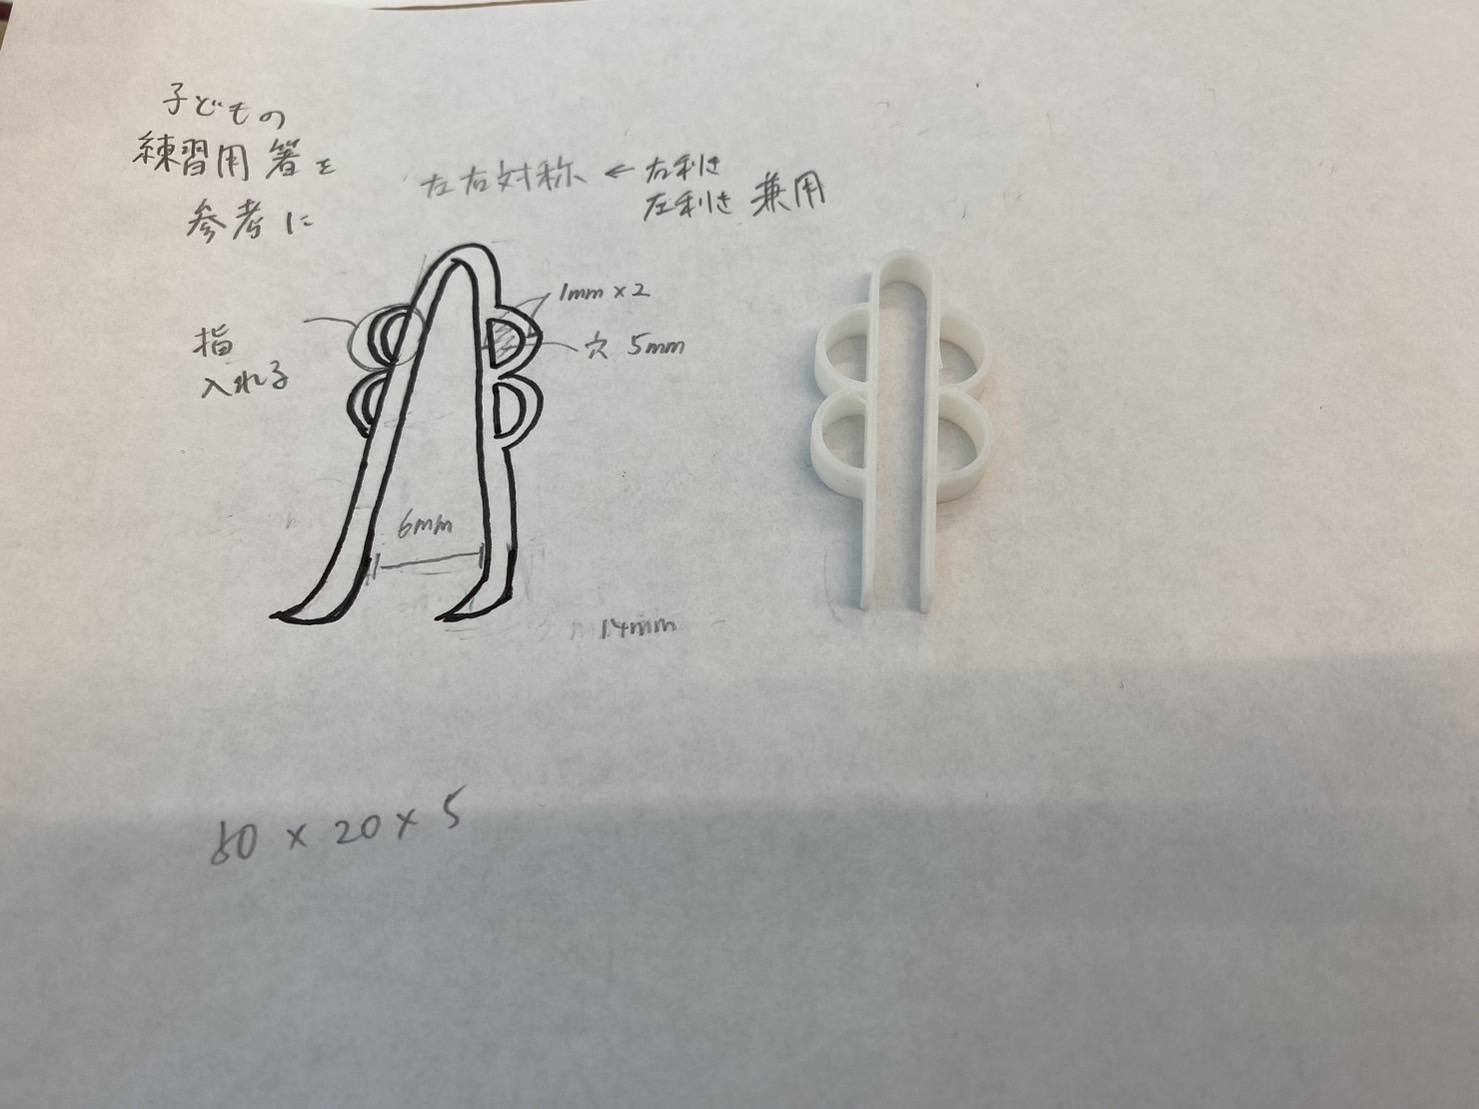 子どもの
練習用箸を
参考に
左右対称 ← 右利き
左利き 兼用
1mm×2
穴 5mm
指
入れる
6mm
14mm
80×20×5